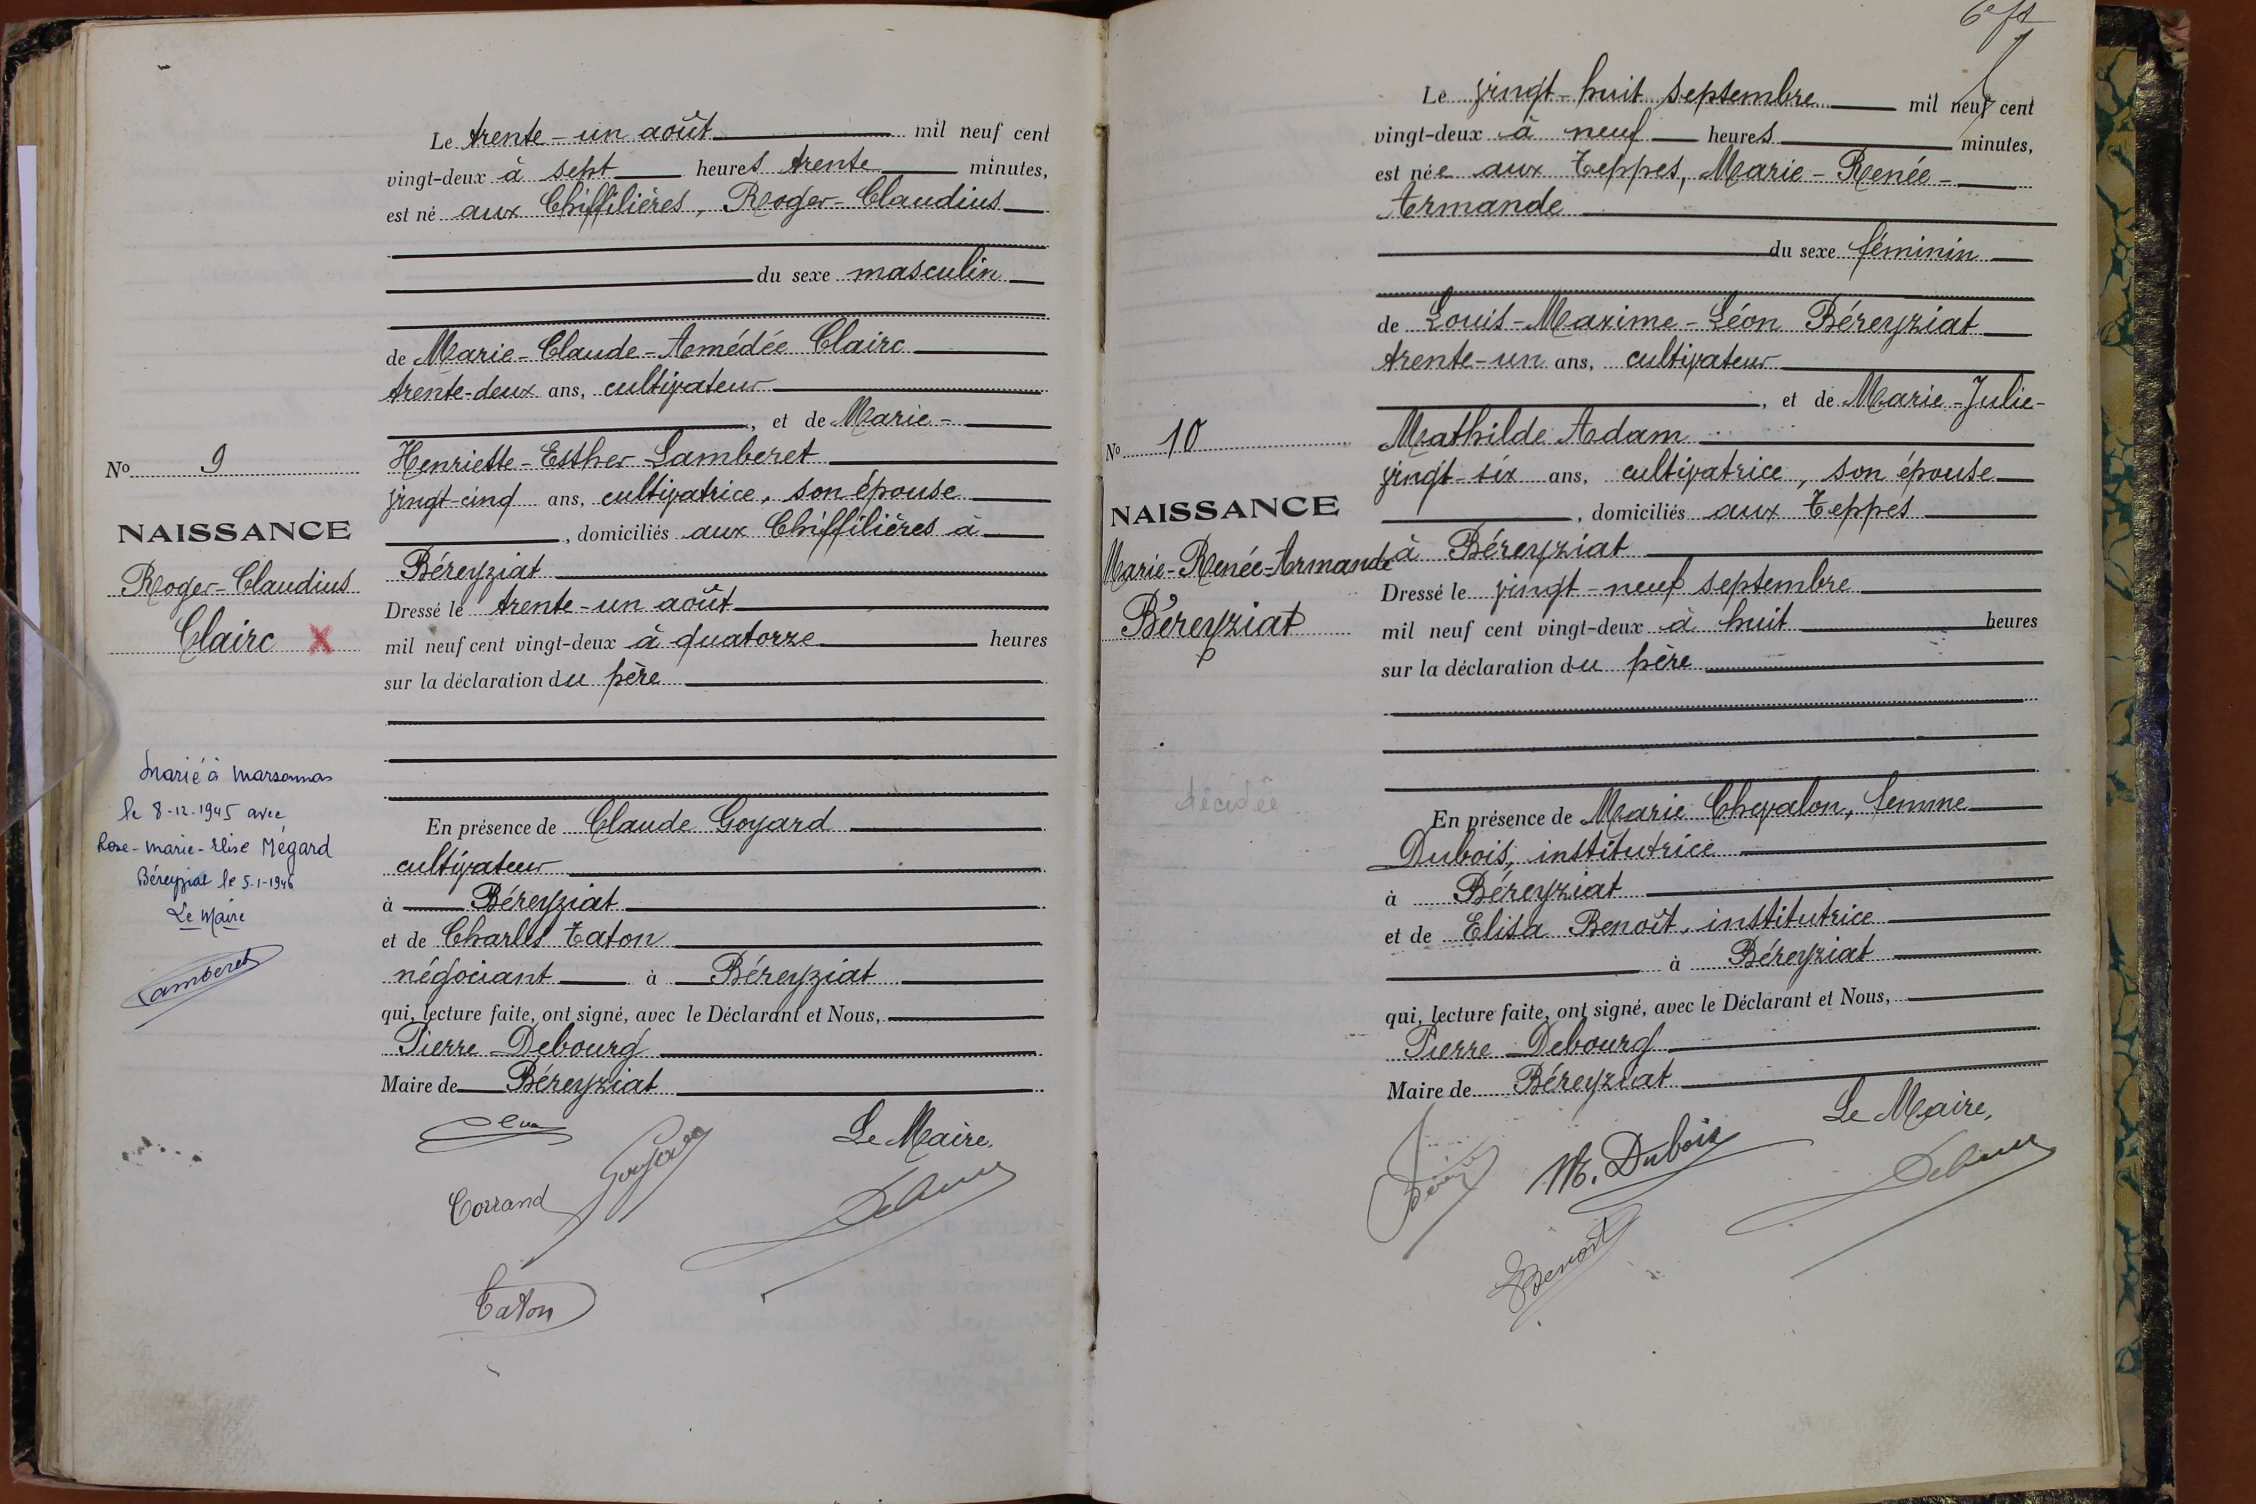 Le trente-un août mil neuf cent
vingt-deux à sept heures trente minutes,
est né aux Chiffilières, Roger-Claudius
du sexe masculin
de Marie-Claude-Amédée Clairc
trente-deux ans, cultivateur
, et de Marie-
Henriette-Esther Lamberet
vingt-cinq ans, cultivatrice, son épouse
, domiciliés aux Chiffilières à
Béreyziat
Dressé le trente-un août
mil neuf cent vingt-deux à quatorze heures
sur la déclaration du père
En présence de Claude Goyard
cultivateur
à Béreyziat
et de Charles Taton
négociant à Béreyziat
qui, lecture faite, ont signé, avec le Déclarant et Nous,
Pierre Debourg
Maire de Béreyziat
Le Maire.
Corrand
Goyard
Taton
No 9
NAISSANCE
Roger-Claudius
Clairc X
Marié à Marsonnas
le 8-12-1945 avec
Rose-Marie-Elise Mégard
Béreyziat le 5-1-1946
Le Maire
Lamberet
Le vingt-huit septembre mil neuf cent
vingt-deux à neuf heures minutes,
est née aux Teppes, Marie-Renée-
Armande
du sexe féminin
de Louis-Maxime-Léon Béreyziat
trente-un ans, cultivateur
, et de Marie-Julie-
Mathilde Adam
vingt-six ans, cultivatrice, son épouse
, domiciliés aux Teppes
à Béreyziat
Dressé le vingt-neuf septembre
mil neuf cent vingt-deux à huit heures
sur la déclaration du père
En présence de Marie Chevalon, femme
Dubois, institutrice
à Béreyziat
et de Elisa Benoît, institutrice
à Béreyziat
qui, lecture faite, ont signé, avec le Déclarant et Nous,
Pierre Debourg
Maire de Béreyziat
Le Maire,
M. Dubois
EBenoît
No 10
NAISSANCE
Marie-Renée-Armande
Béreyziat
décédée